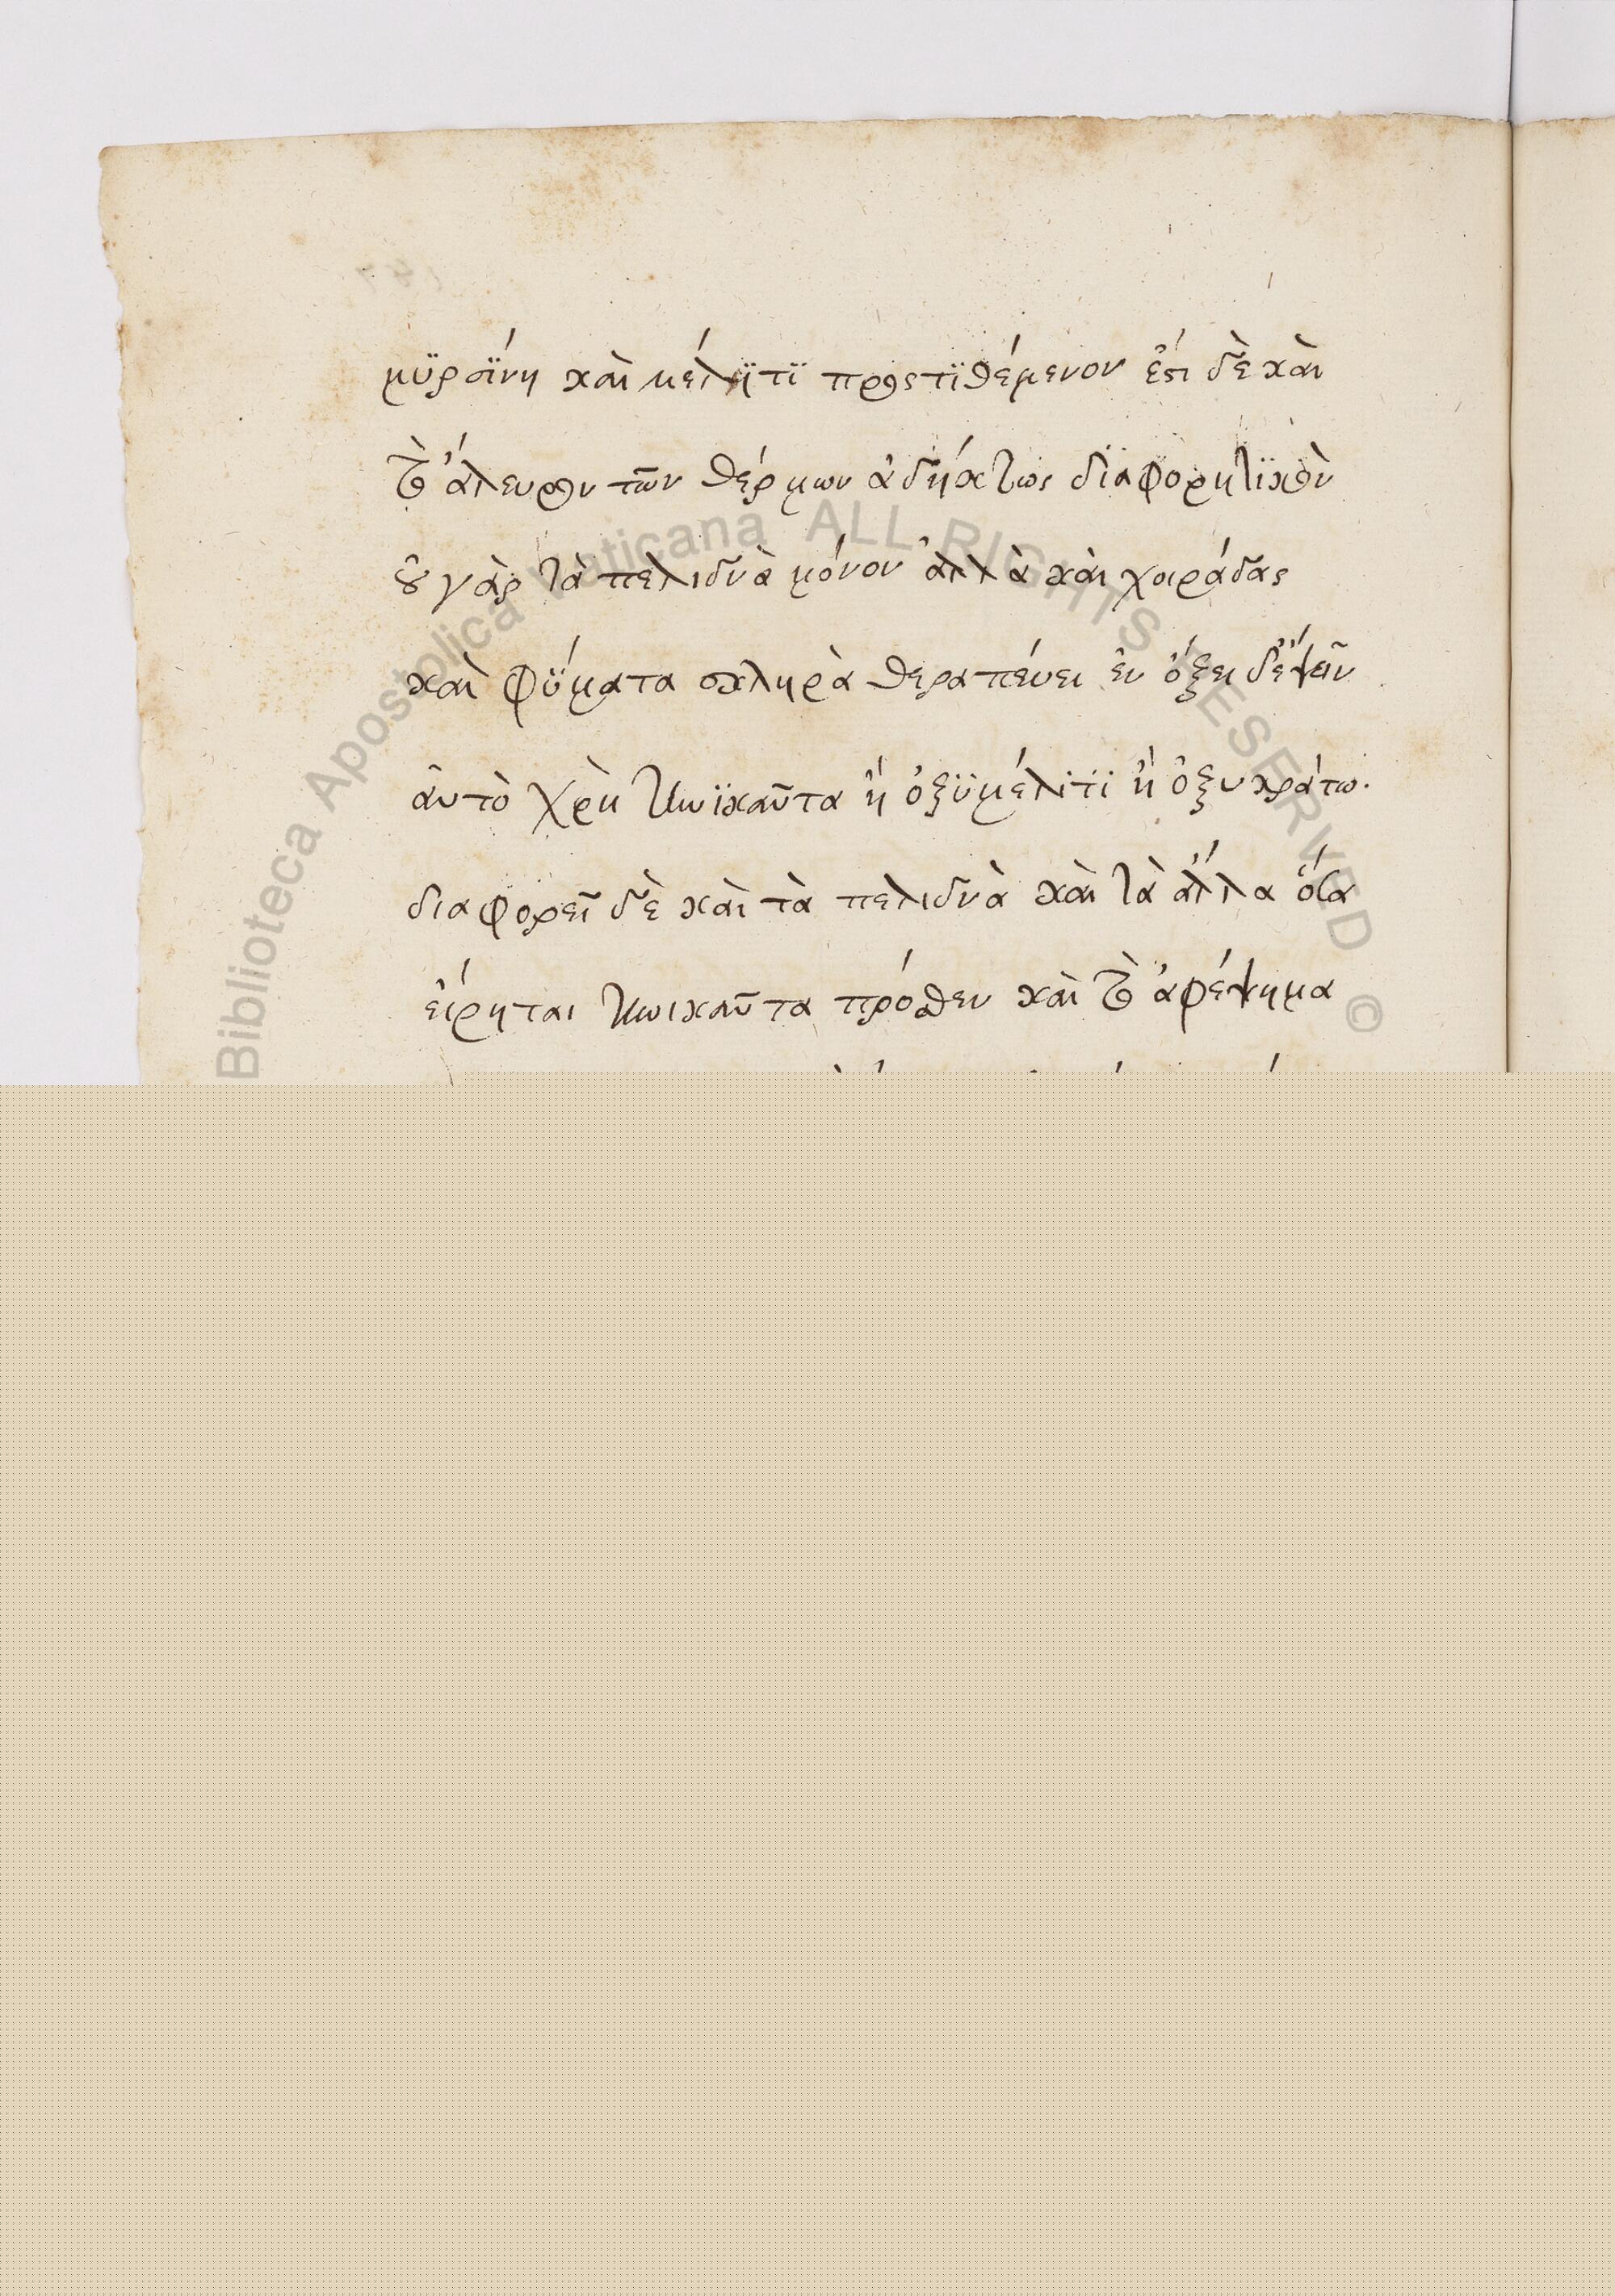 μϋρσϊνη καὶ μέλητϊ προςτϊθέμενον ἔστι δὲ καὶ
τὸ ἄλευρον τῶν θέρμων ἀδήκτως δϊαφορητϊκὸν
οὐ γὰρ τὰ πελιδνὰ μόνον ἀλλὰ καὶ χοιράδας
καὶ φϋματα σκληρὰ θεραπέυει ἐν ὄξει δἕψειν
ἀυτὸ χρὴ τηνϊκαῦτα ἢ ὀξϋμέλιτϊ ἢ ὀξυκράτω.
διαφορεῖ δὲ καὶ τὰ πελιδνὰ καὶ τὰ ἄλλα ὅσα
εἴρηται τηνικαῦτα πρόσθεν καὶ τὸ ἀφέψημα
Biblioteca Apostolica Vaticana ALL RIGHTS RESERVED ©